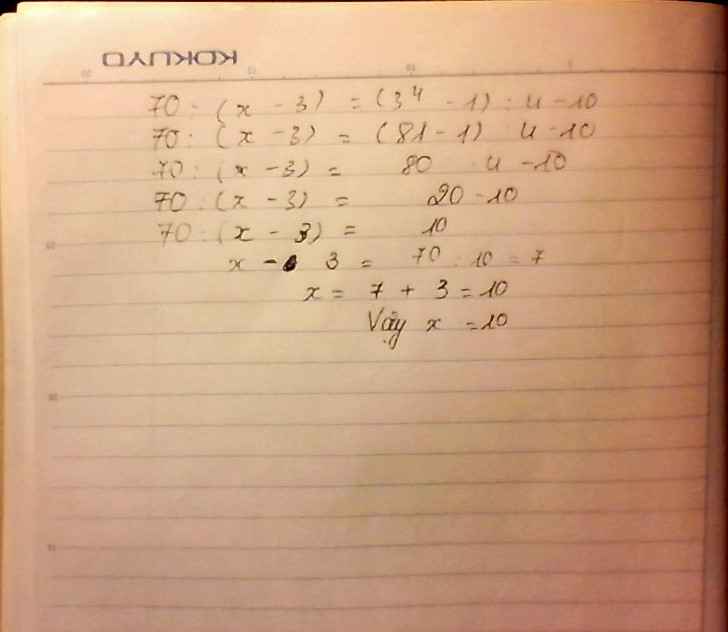 KOKUYO
70 : (x - 3) = (3⁴ - 1) : 4 - 10
70 : (x - 3) = (81 - 1) : 4 - 10
70 : (x - 3) = 80 : 4 - 10
70 : (x - 3) = 20 - 10
70 : (x - 3) = 10
x - 3 = 70 : 10 = 7
x = 7 + 3 = 10
Vậy x = 10